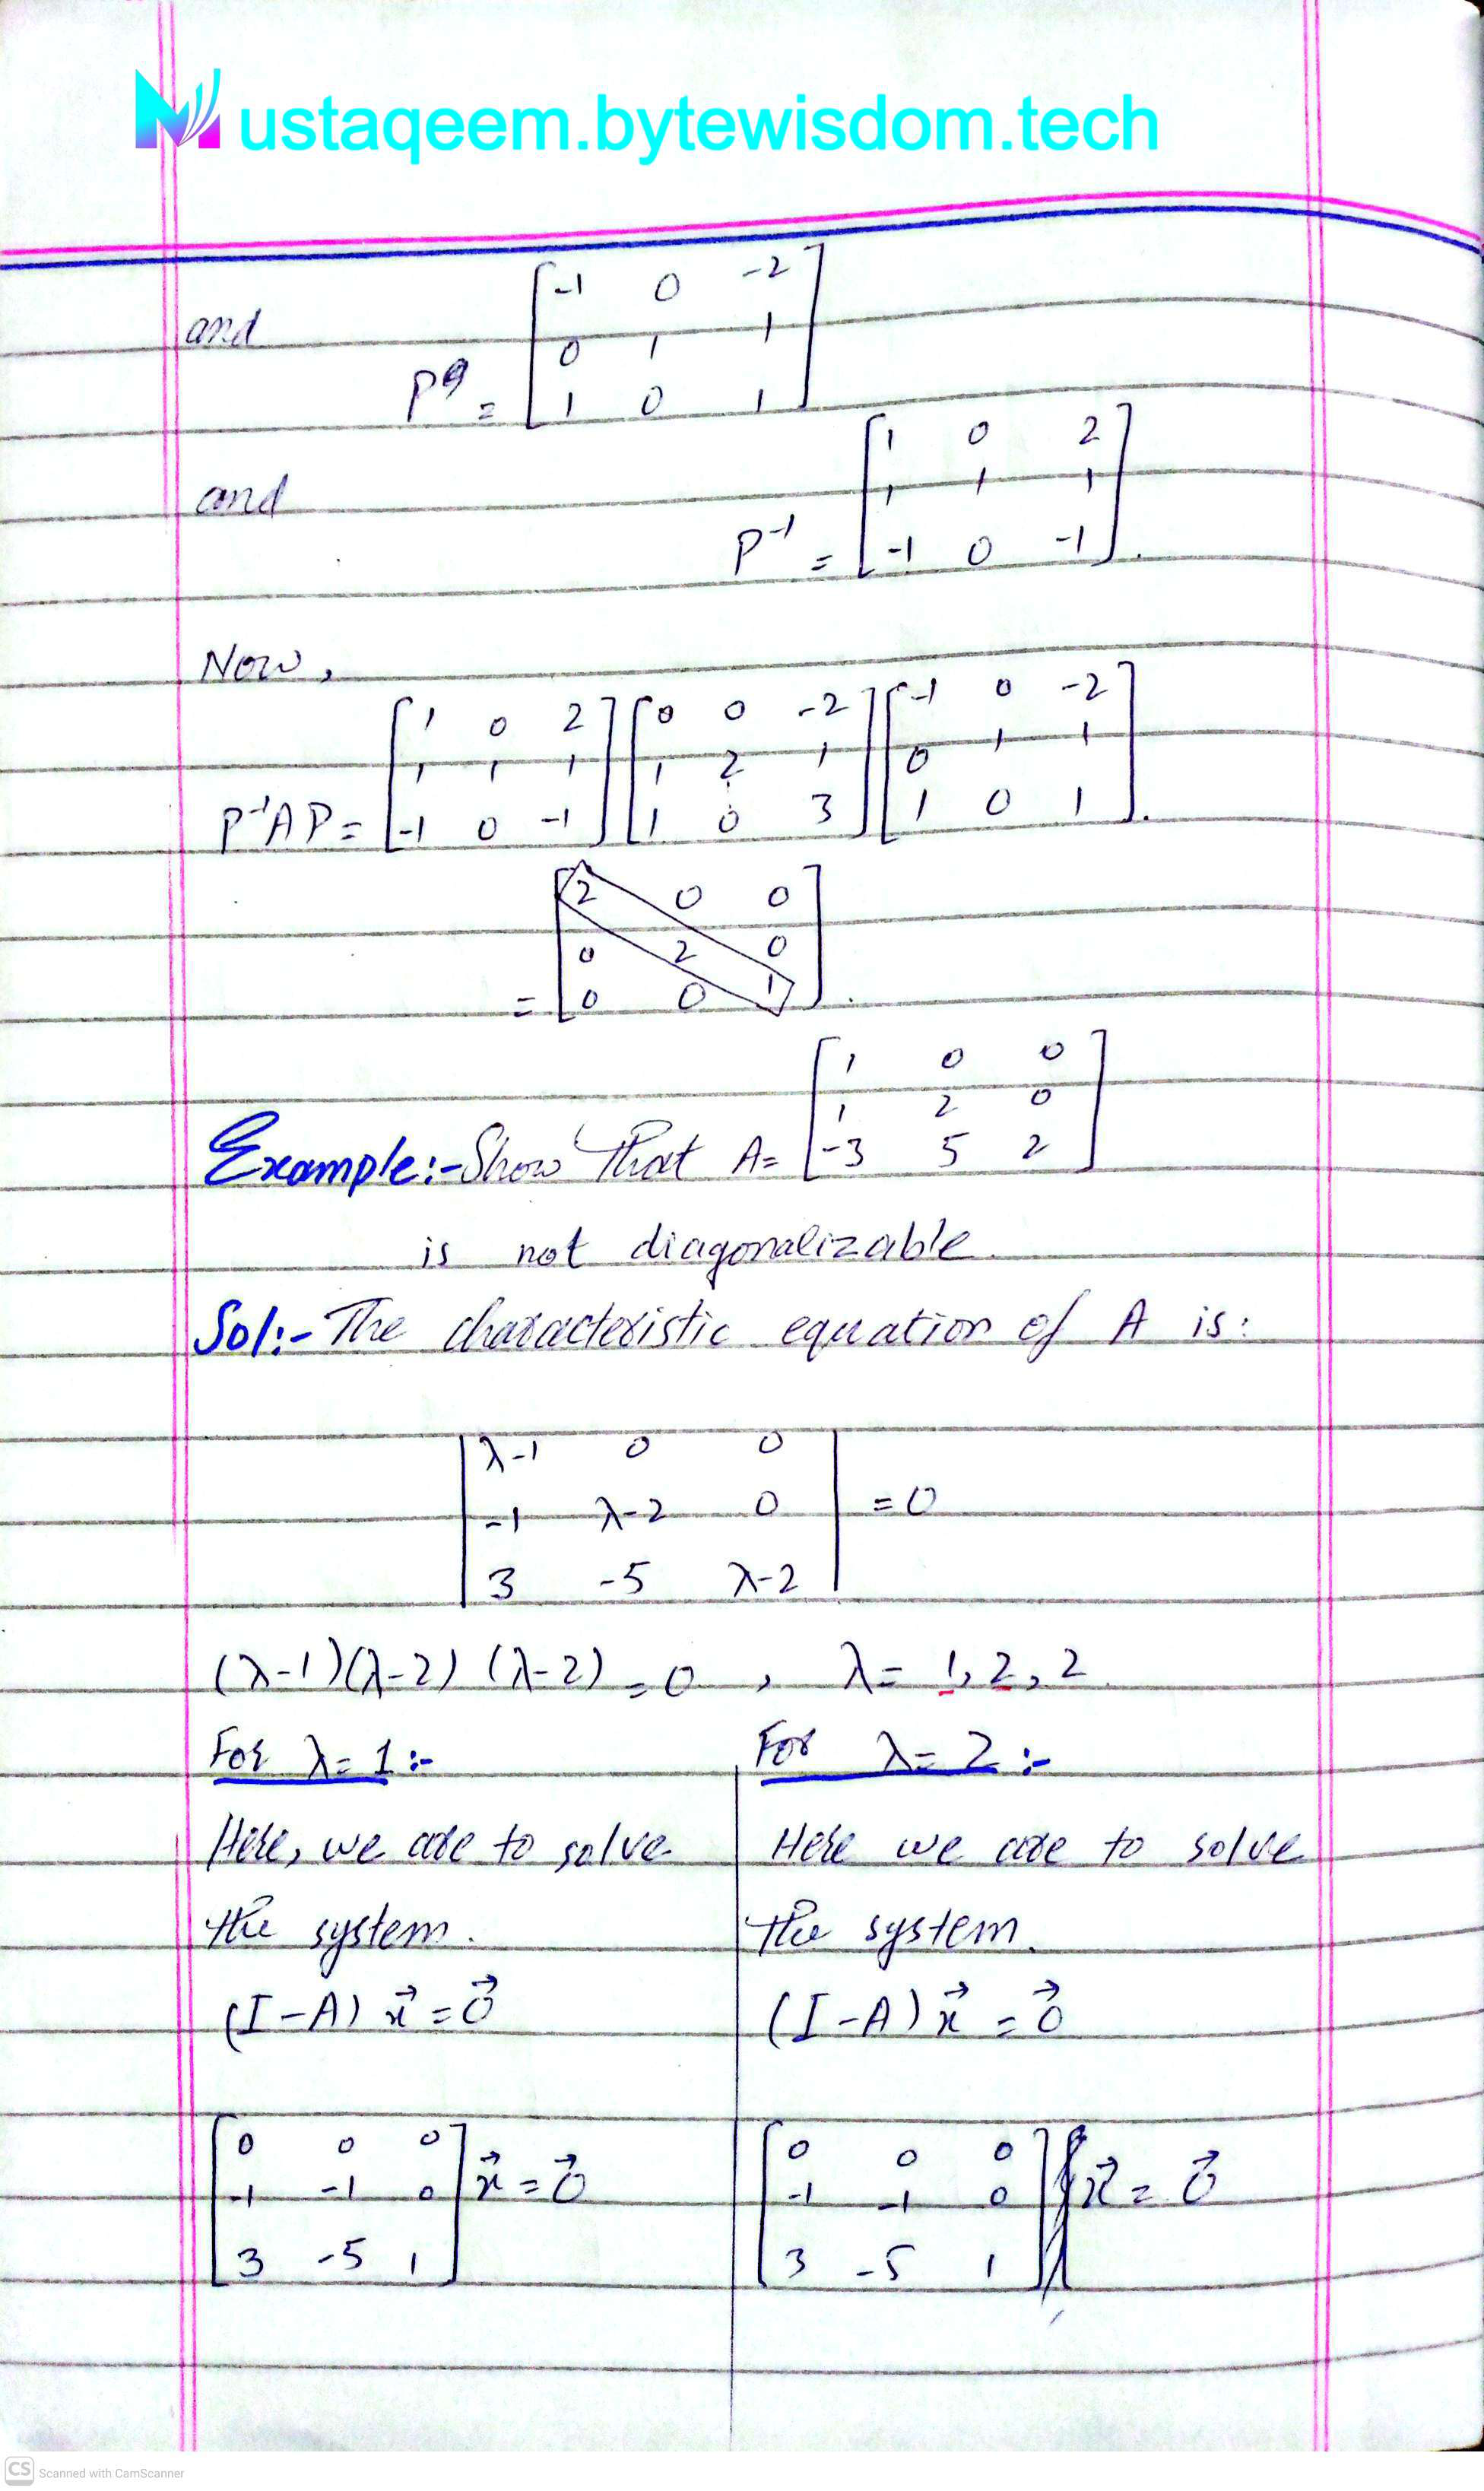 Mustaqeem.bytewisdom.tech
and
-1 0 -2
0 1 1
P = 1 0 1
and
1 0 2
1 1 1
P⁻¹ = -1 0 -1 .
Now,
1 0 2 0 0 -2 -1 0 -2
1 1 1 1 2 1 0 1 1
P⁻¹AP = -1 0 -1 1 0 3 1 0 1 .
2 0 0
0 2 0
= 0 0 1 .
1 0 0
1 2 0
Example:- Show that A= -3 5 2
is not diagonalizable.
Sol:- The characteristic equation of A is:
λ-1 0 0
-1 λ-2 0 = 0
3 -5 λ-2
(λ-1)(λ-2)(λ-2) = 0 , λ = 1, 2, 2
For λ = 1 :-
Here, we are to solve
the system.
(I-A) x⃗ = 0⃗
0 0 0
-1 -1 0 x⃗ = 0⃗
3 -5 1
For λ = 2 :-
Here we are to solve
the system.
(I-A) x⃗ = 0⃗
0 0 0
-1 -1 0 x⃗ = 0⃗
3 -5 1
CS Scanned with CamScanner